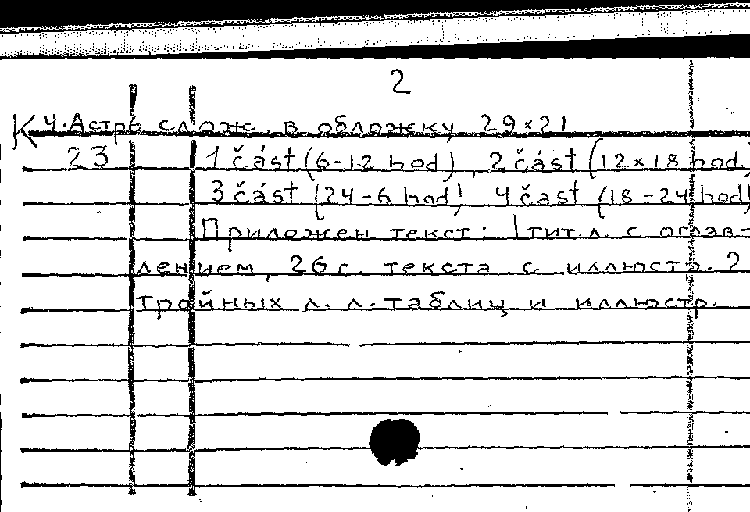 2
К 4.Астр. слож. в обложку 29×21
23 1 část (6-12 hod), 2 část (12×18 hod)
3 část (24-6 hod) 4 část (18-24 hod)
Приложен текст: 1 тит.л. с оглав-
лением, 26 с. текста с иллюстр. 2
тройных л. л. таблиц и иллюстр.